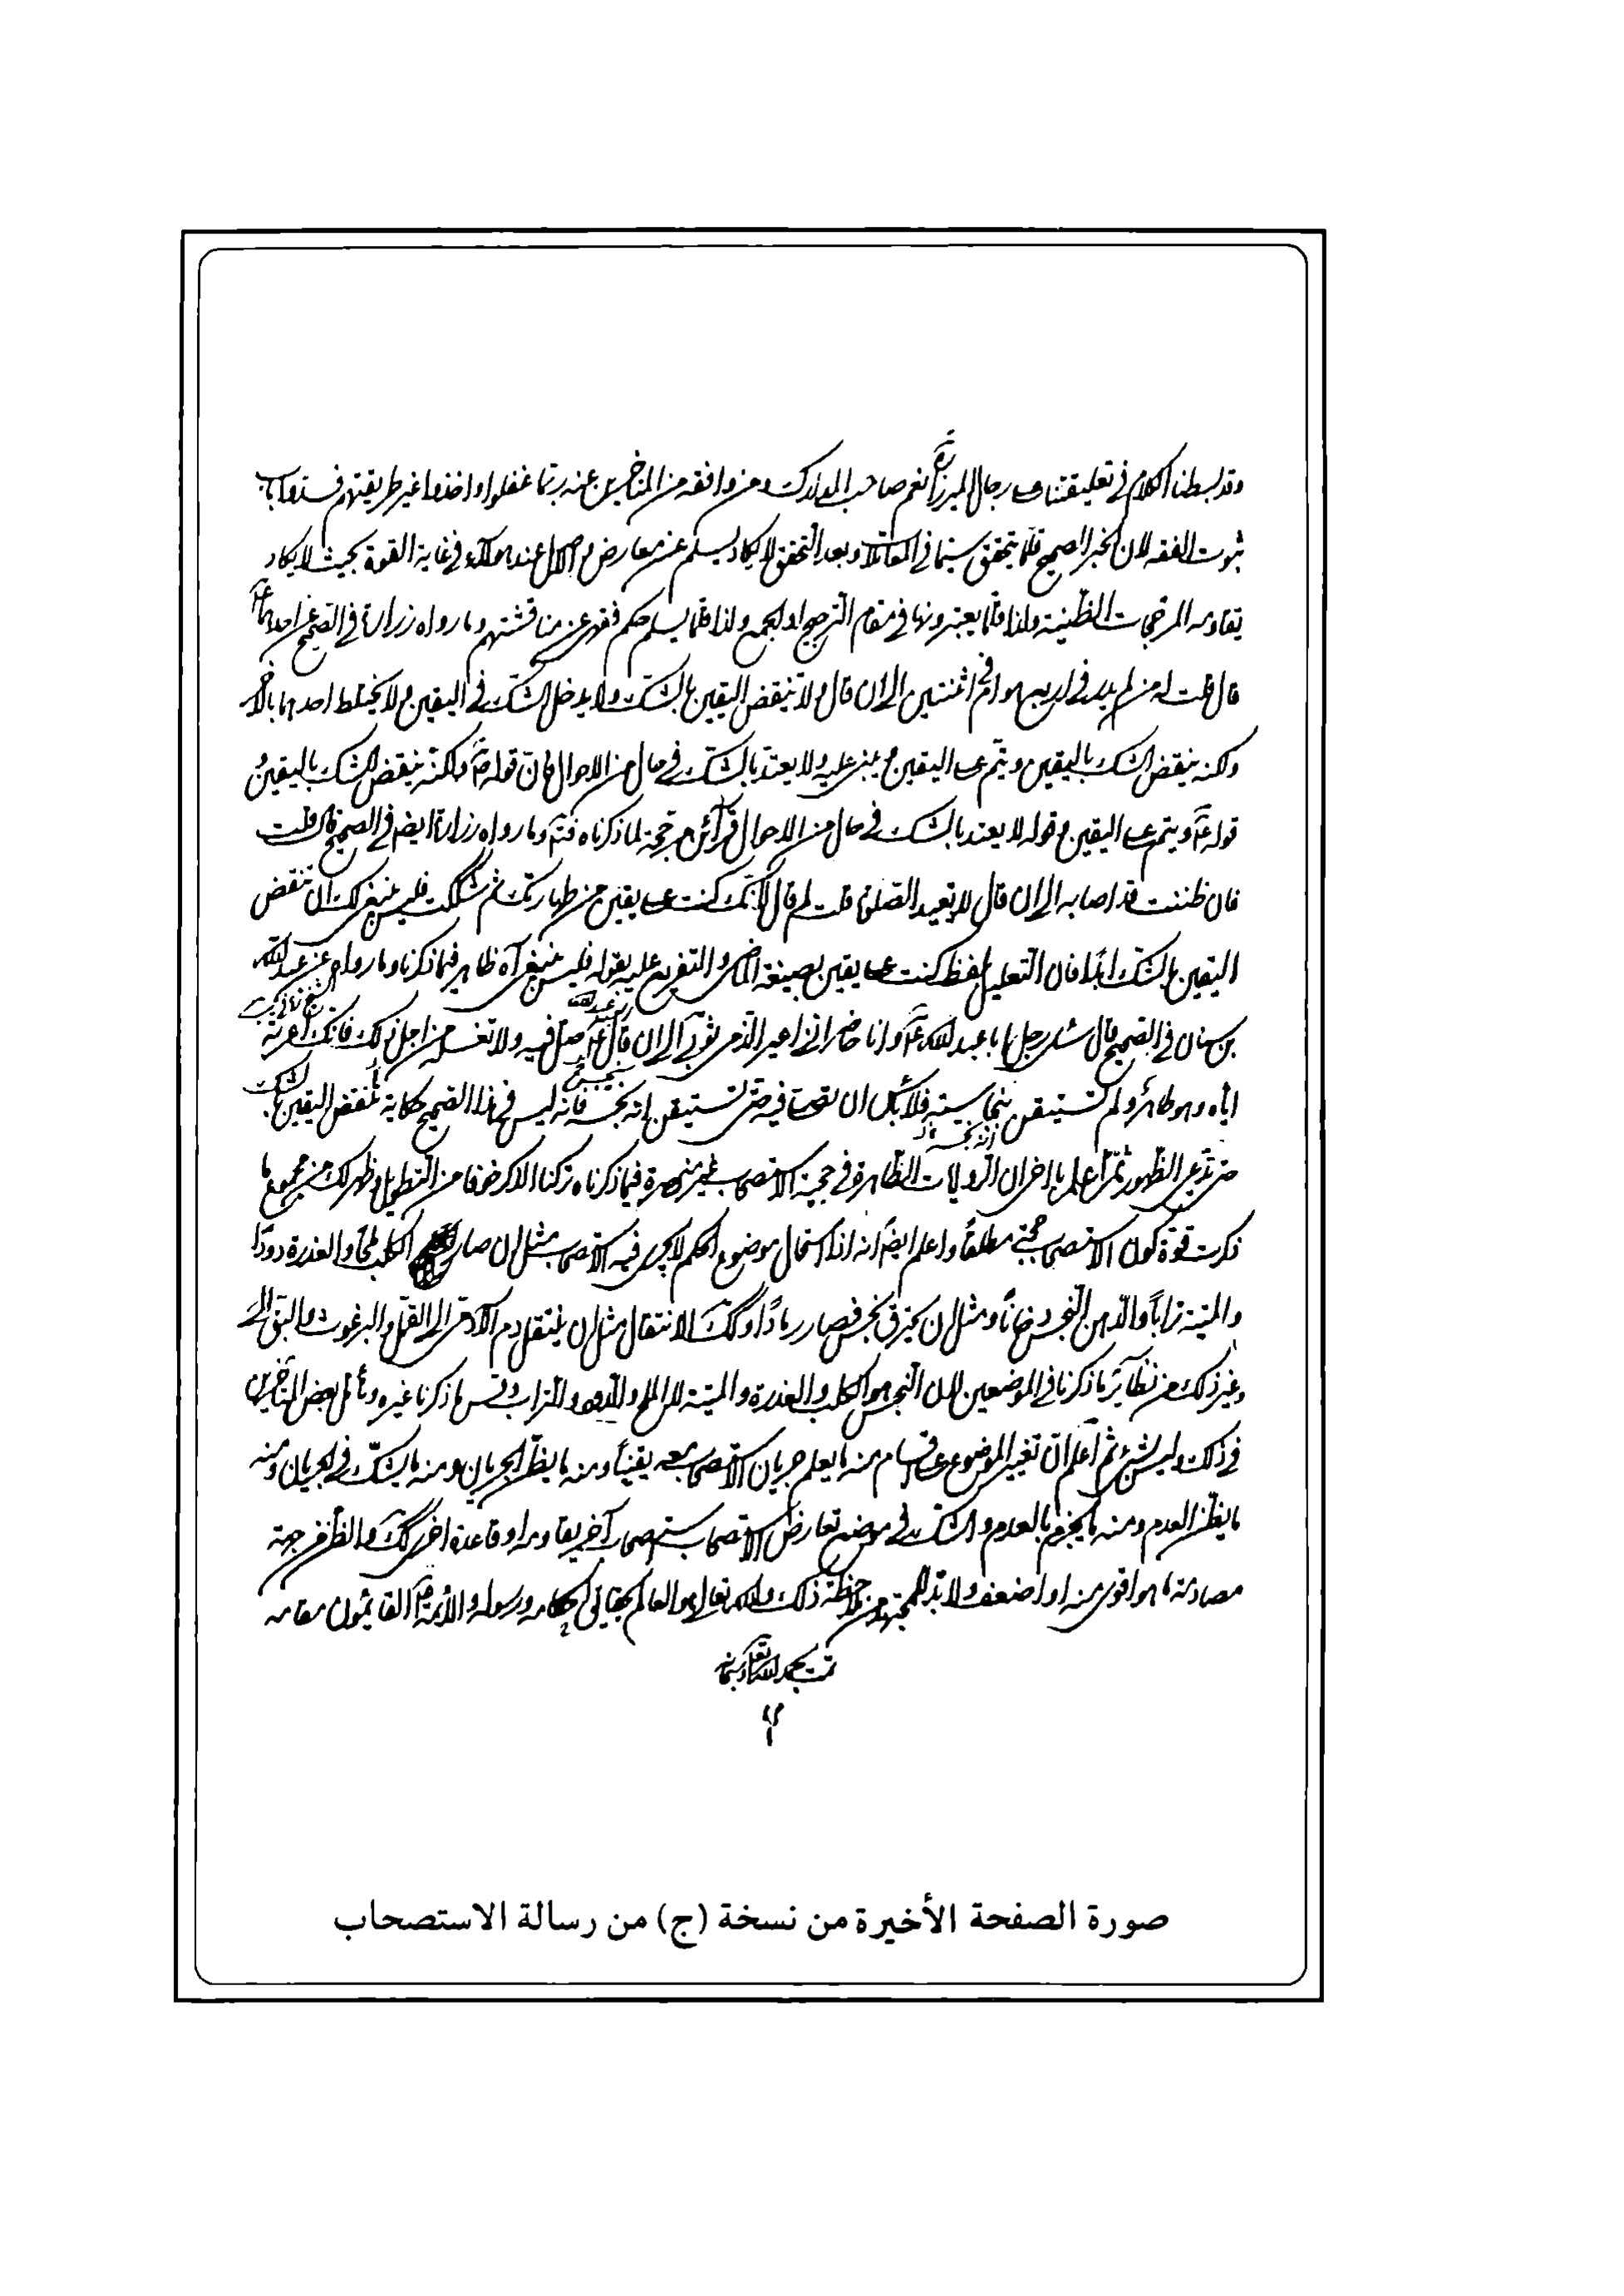 وقد بسطنا الكلام في تعليقتنا على رجال الميرزا ره نعم صاحب المدارك ومن وافقه من المتأخرين عنه ربما غفلوا واخذوا غير طريقتهم
ثبوت الفقه لان الخبر الصحيح قلما يتحقق سيما في المعاملات وبعد التحقق لا يكاد يسلم عن معارض والاصل عند هؤلاء في غاية القوة بحيث لا يكاد
يقاومه المرجحات الظنية ولذا قلما يعتبرونها في مقام الترجيح او الجمع ولذا قلما يسلم حكم فقهي عن مناقشتهم وما رواه زرارة في الصحيح عن احدهما ع
قال قلت له من لم يدر في اربع هو ام في اثنتين الى ان قال ولا تنقض اليقين بالشك ولا يدخل الشك في اليقين ولا يختلط احدهما بالآخر
ولكنه ينقض الشك باليقين ويتم على اليقين ويبني عليه ولا يعتد بالشك في حال من الاحوال فان قوله ع ولكنه ينقض الشك باليقين و
قوله ع ويتم على اليقين وقوله لا يعتد بالشك في حال من الاحوال قرائن مرجحة لما ذكرناه فتم وما رواه زرارة ايضا في الصحيح قال قلت
فان ظننت قد اصابه الى ان قال لا تعيد الصلوة قلت لم قال لانك كنت على يقين من طهارتك ثم شككت فليس ينبغي لك ان تنقض
اليقين بالشك ابدا فان التعليل بلفظ كنت على يقين بصيغة الماضي والتفريع عليه بقوله فليس ينبغي آه ظاهر فيما ذكرنا وما رواه عن عبد الله
بن سنان في الصحيح قال سئل رجل ابا عبد الله ع وانا حاضر اني اعير الذمي ثوبي الى ان قال ع صل فيه ولا تغسله من اجل ذلك فانك اعرته
اياه وهو طاهر ولم تستيقن بنجاسته فلا بأس ان تصلي فيه حتى تستيقن انه نجسه فانه ليس في هذا الصحيح حكاية لا تنقض اليقين بالشك
حتى تدعى الظهور ثم اعلم يا اخي ان الروايات الظاهرة في حجية الاستصحاب غير منحصرة فيما ذكرناه تركنا الذكر خوفا من التطويل وظهر لك من مجموع ما
ذكرت قوة كون الاستصحاب حجة مطلقا واعلم ايضا انه اذا استحال موضوع الحكم لا يجري فيه الاستصحاب مثل ان صار الكلب ملحا والعذرة دودا
والميتة ترابا والدهن النجس دخانا ومثل ان يحترق نجس فصار رمادا وكك الانتقال مثل ان ينتقل دم الآدمي الى القمل والبرغوث والبق
وغير ذلك من نظائر ما ذكرنا في الموضعين لان النجس هو الكلب والعذرة والميتة لا الملح والدود والتراب وقس ما ذكرنا غيره وتأمل بعض المتأخرين
في ذلك وليس بشئ ثم اعلم ان تغيير الموضوع على اقسام منه ما يعلم جريان الاستصحاب معه يقينا ومنه ما يظن الجريان ومنه ما يشك في الجريان ومنه
ما يظن العدم ومنه ما يجزم بالعدم والشك في موضع تعارض الاستصحاب باستصحاب آخر يقاومه او قاعدة اخرى كك والظن من جهة
مصادمة ما هو اقوى منه او اضعف ولا بد للمجتهد من ملاحظة ذلك والله تعالى هو العالم بحقائق احكامه ورسوله والأئمة ع القائمون مقامه
تمت بحمد الله تعالى
صورة الصفحة الأخيرة من نسخة (ج) من رسالة الاستصحاب